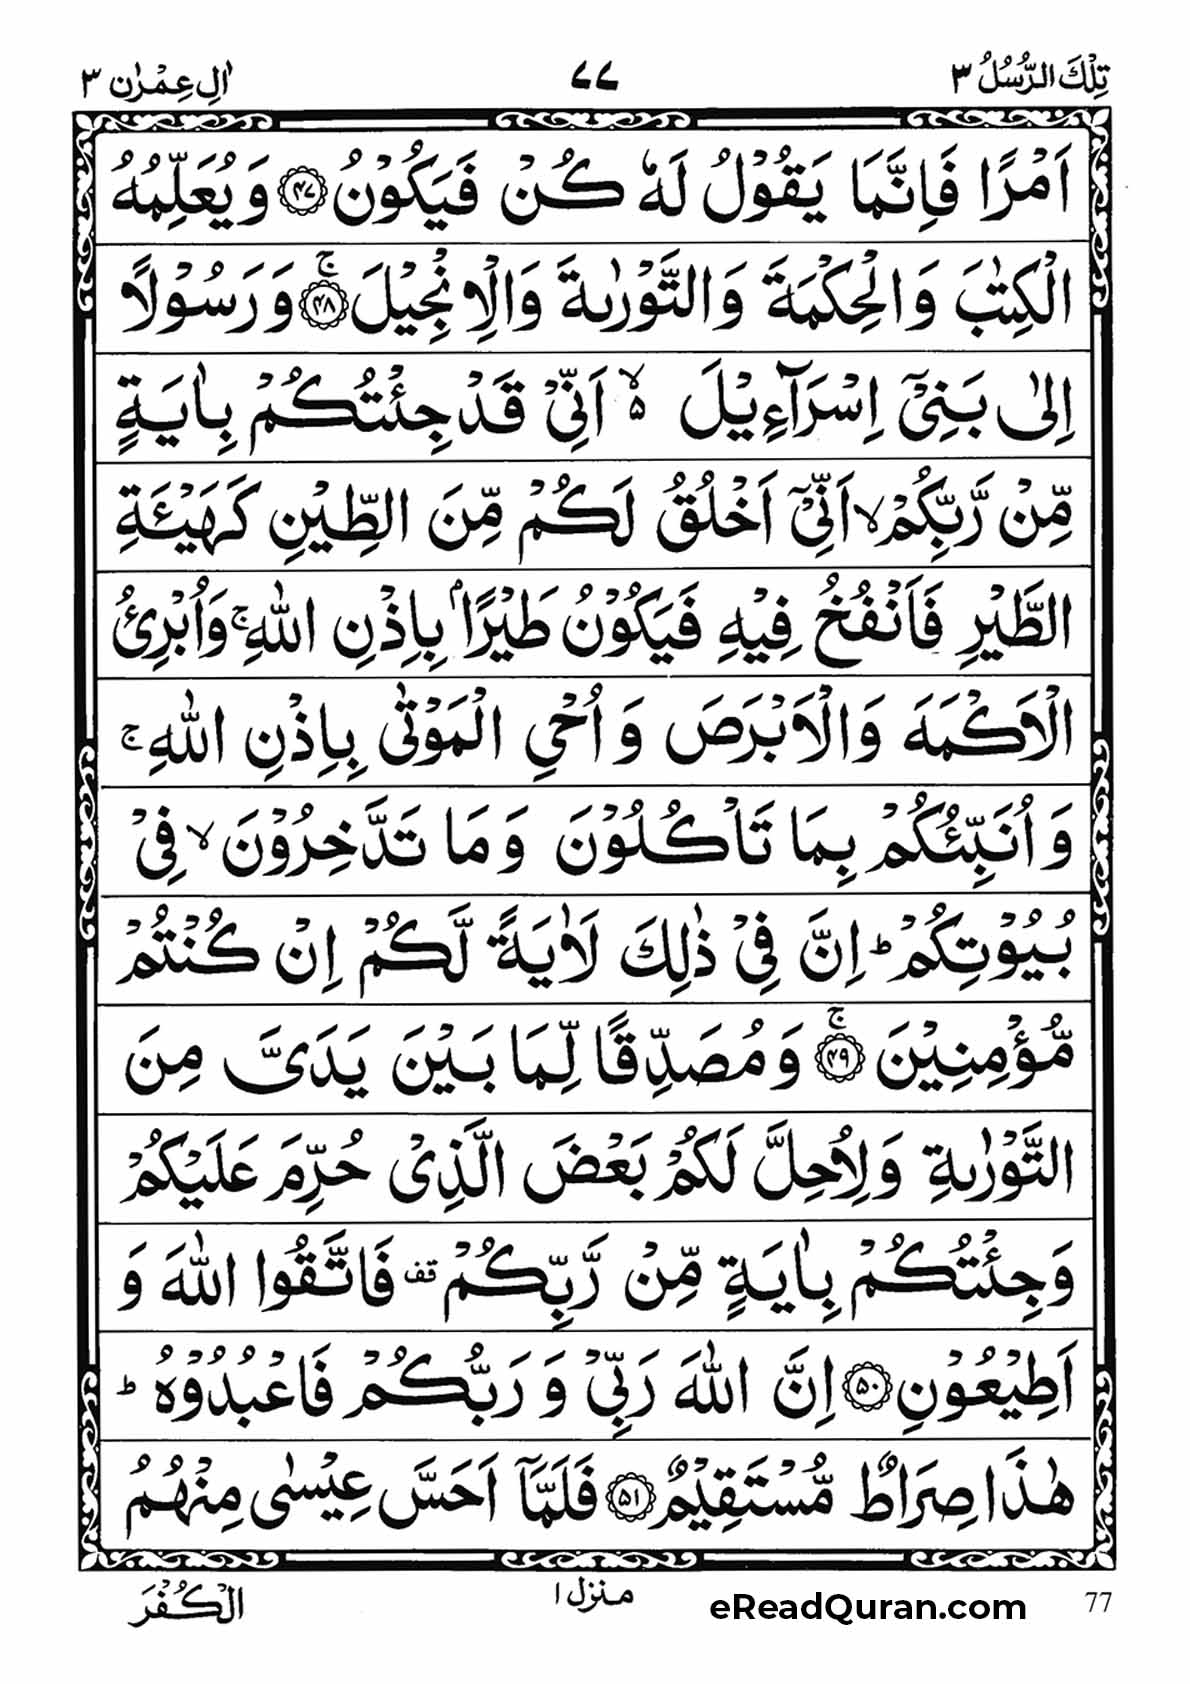 تِلْكَ الرُّسُلُ ٣
٧٧
اٰلِ عِمْرٰن ٣
اَمْرًا فَاِنَّمَا يَقُوْلُ لَهٗ كُنْ فَيَكُوْنُ ﴿۴۷﴾ وَيُعَلِّمُهُ
الْكِتٰبَ وَالْحِكْمَةَ وَالتَّوْرٰىةَ وَالْاِنْجِيْلَ ۚ﴿۴۸﴾ وَرَسُوْلًا
اِلٰى بَنِيْٓ اِسْرَآءِيْلَ ۙ۵ اَنِّيْ قَدْ جِئْتُكُمْ بِاٰيَةٍ
مِّنْ رَّبِّكُمْ ۙ اَنِّيْٓ اَخْلُقُ لَكُمْ مِّنَ الطِّيْنِ كَهَيْـَٔةِ
الطَّيْرِ فَاَنْفُخُ فِيْهِ فَيَكُوْنُ طَيْرًاۢ بِاِذْنِ اللّٰهِ ۚ وَاُبْرِئُ
الْاَكْمَهَ وَالْاَبْرَصَ وَاُحْيِ الْمَوْتٰى بِاِذْنِ اللّٰهِ ۚ
وَاُنَبِّئُكُمْ بِمَا تَاْكُلُوْنَ وَمَا تَدَّخِرُوْنَ ۙ فِيْ
بُيُوْتِكُمْ ؕ اِنَّ فِيْ ذٰلِكَ لَاٰيَةً لَّكُمْ اِنْ كُنْتُمْ
مُّؤْمِنِيْنَ ۚ﴿۴۹﴾ وَمُصَدِّقًا لِّمَا بَيْنَ يَدَيَّ مِنَ
التَّوْرٰىةِ وَلِاُحِلَّ لَكُمْ بَعْضَ الَّذِيْ حُرِّمَ عَلَيْكُمْ
وَجِئْتُكُمْ بِاٰيَةٍ مِّنْ رَّبِّكُمْ قف فَاتَّقُوا اللّٰهَ وَ
اَطِيْعُوْنِ ﴿۵۰﴾ اِنَّ اللّٰهَ رَبِّيْ وَرَبُّكُمْ فَاعْبُدُوْهُ ؕ
هٰذَا صِرَاطٌ مُّسْتَقِيْمٌ ﴿۵۱﴾ فَلَمَّآ اَحَسَّ عِيْسٰى مِنْهُمُ
الْكُفْرَ
منزل ١
eReadQuran.com
77